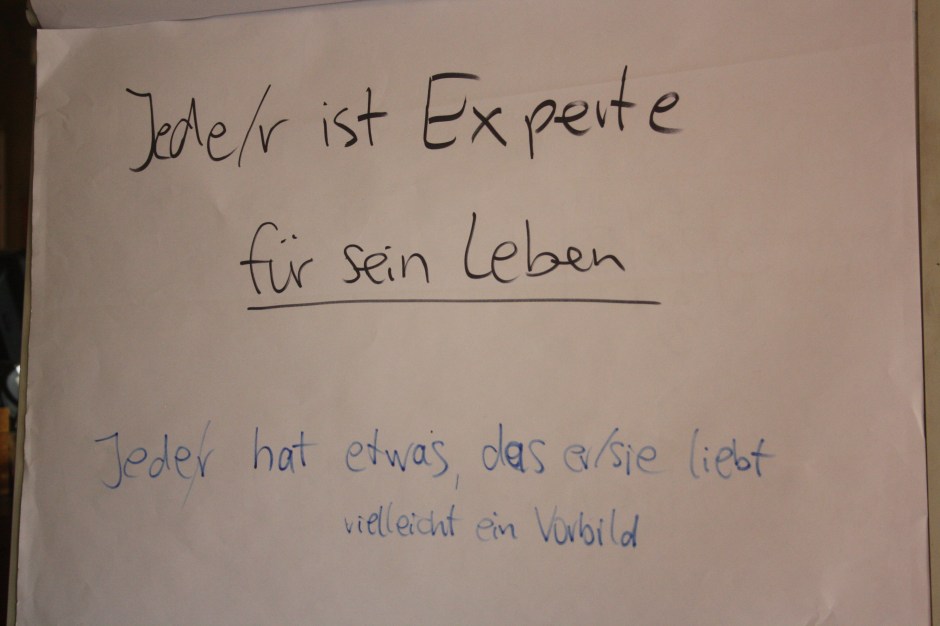 Jede/r ist Experte
für sein Leben
Jede/r hat etwas, das er/sie liebt
vielleicht ein Vorbild